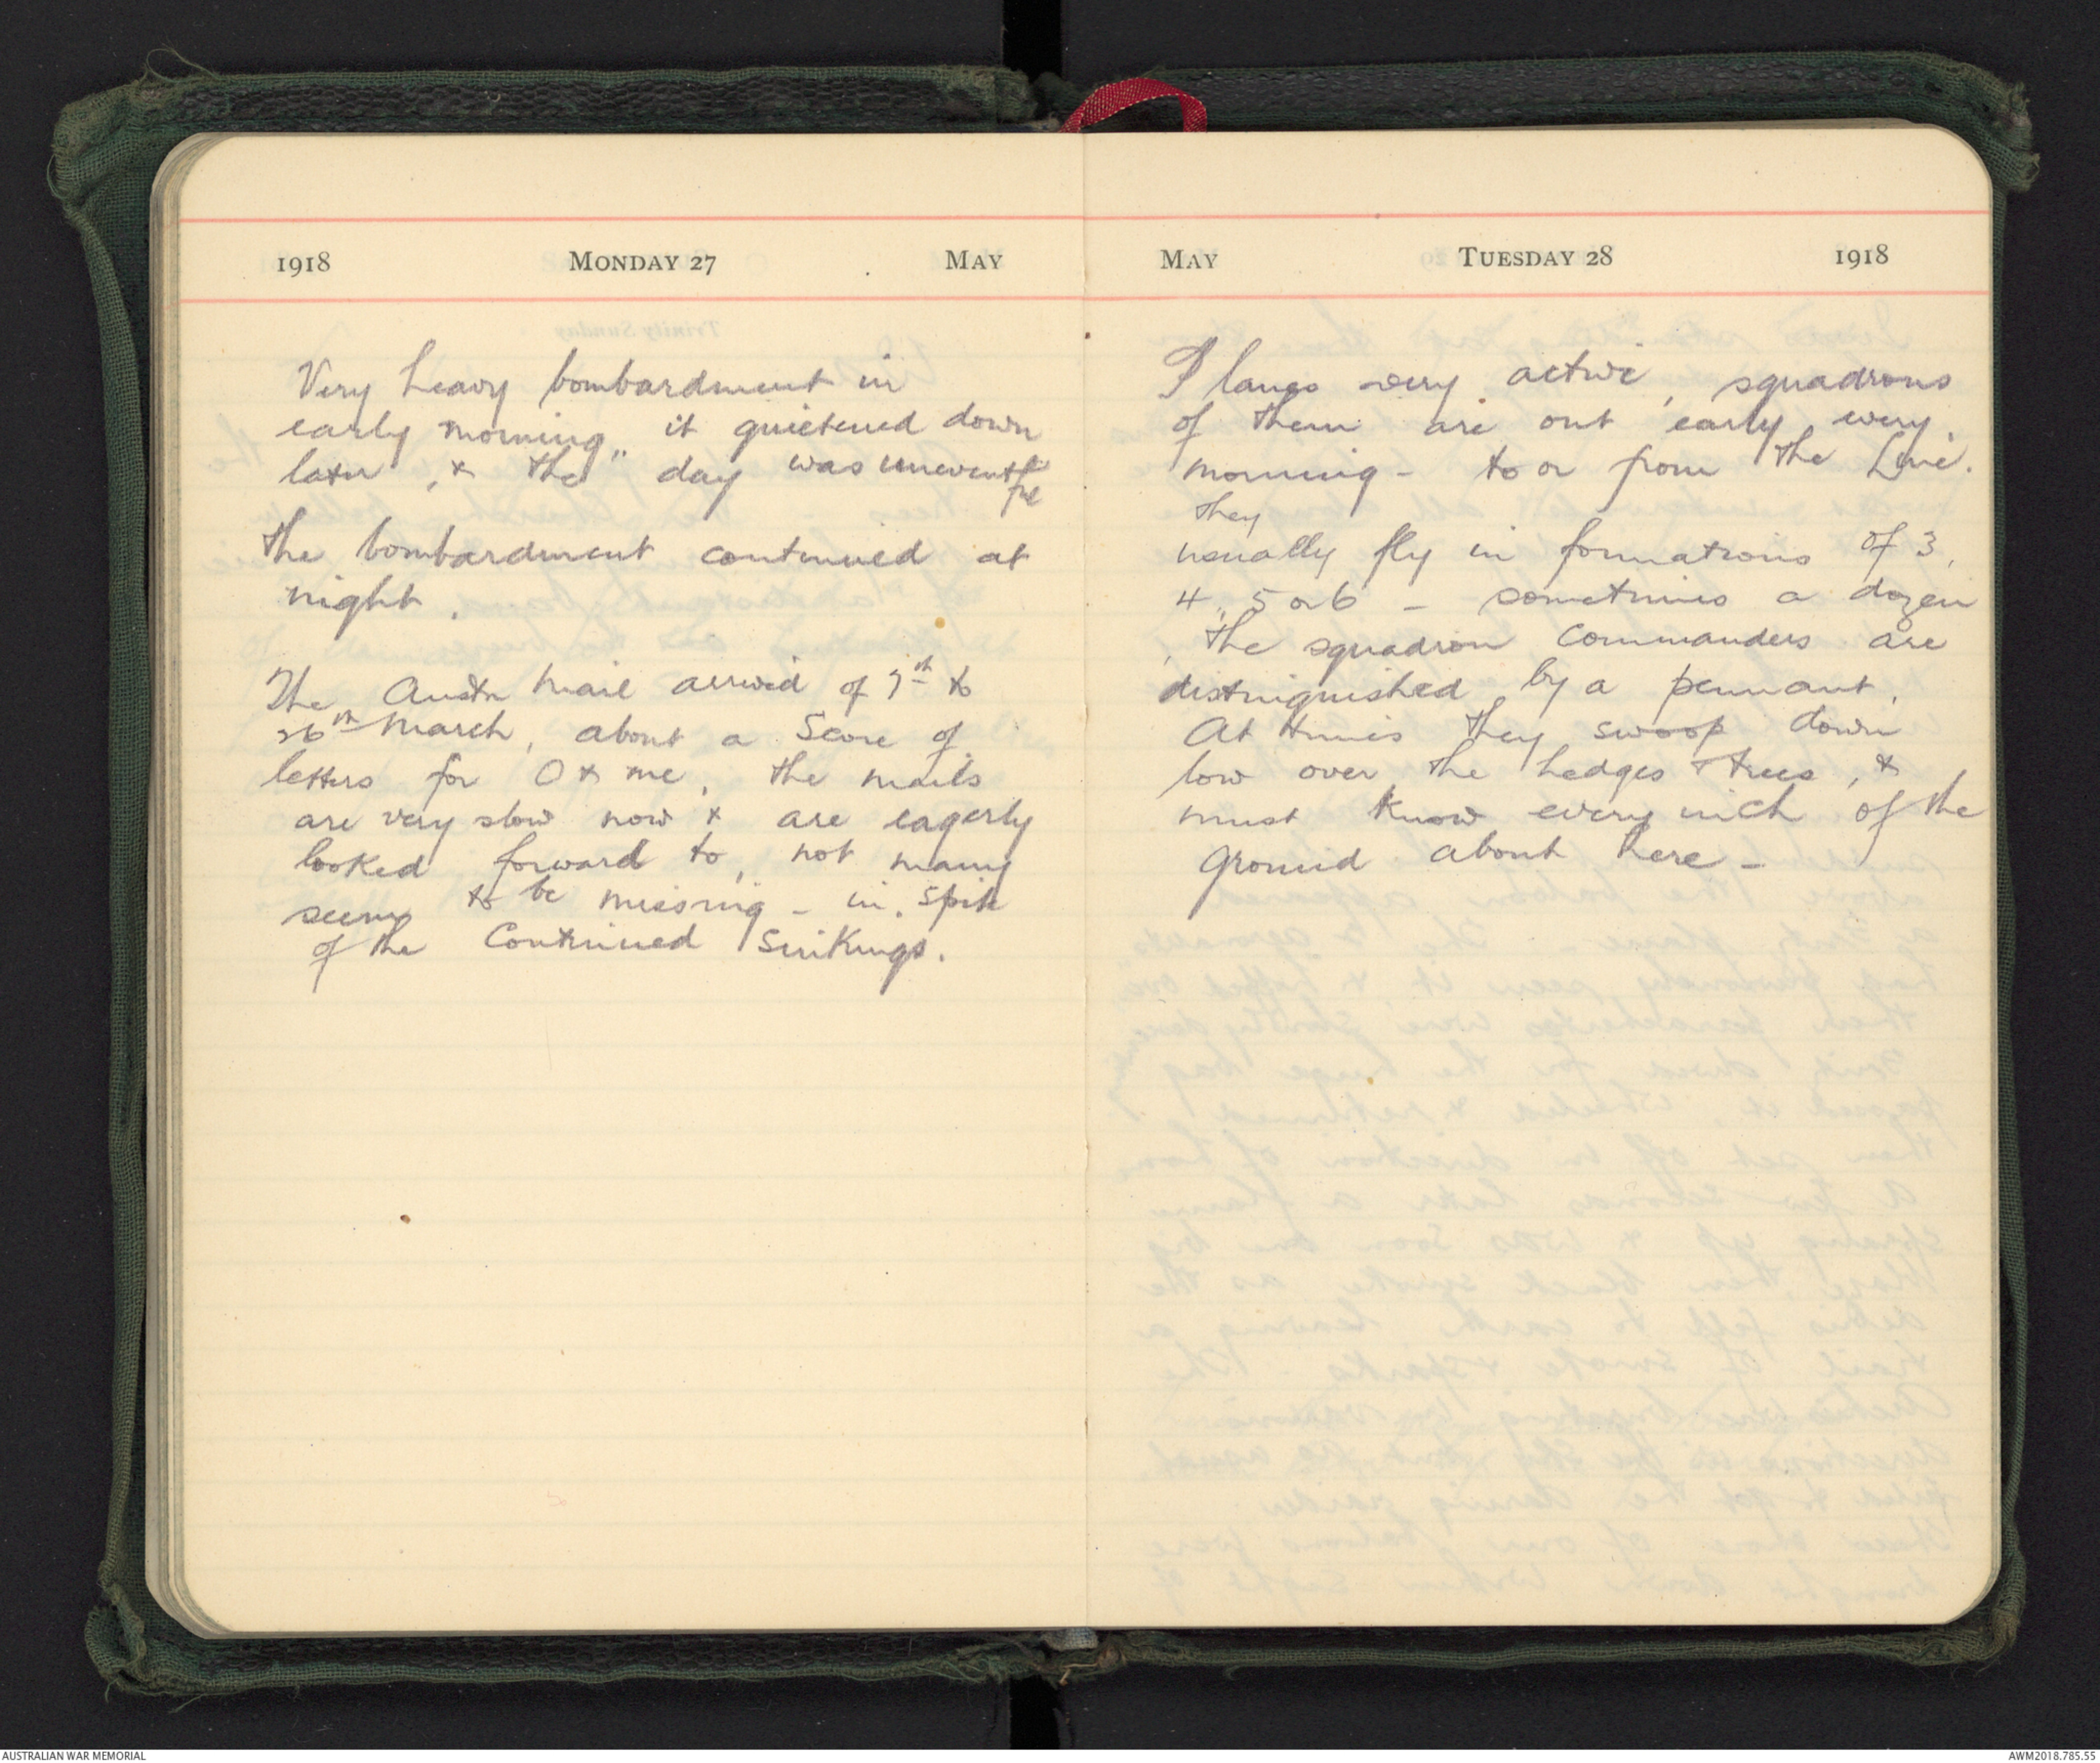 1918 MONDAY 27 MAY
Very heavy bombardment in
early morning, it quietened down
later, & the day was uneventful
the bombardment continued at
night.
The Austn mail arrived of 7th to
26th March, about a Score of
letters for O & me, the mails
are very slow now & are eagerly
looked forward to, not many
seems to be missing - in spite
of the Continued Sinkings.
MAY TUESDAY 28 1918
Planes very active, squadrons
of them are out early every
morning - to or from the Line.
they
usually fly in formations of 3,
4, 5 or 6 - sometimes a dozen
, the squadron Commanders are
distinguished by a pennant.
At times they swoop down
low over the hedges & trees, &
must know every inch of the
ground about here -
AUSTRALIAN WAR MEMORIAL
AWM2018.785.55